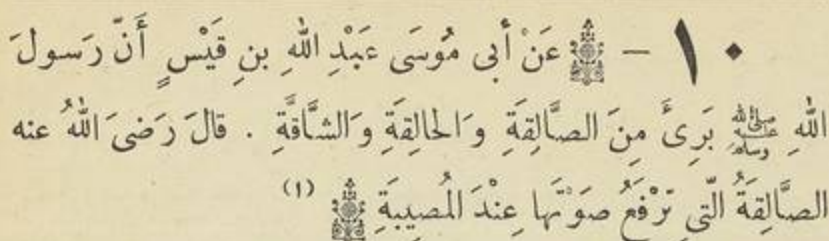 ١٠ - عَنْ أَبى مُوسَى عَبْدِ اللهِ بنِ قَيْسٍ أَنَّ رَسولَ
اللهِ ﷺ بَرِئَ مِنَ الصَّالِقَةِ وَالحالِقَةِ وَالشَّاقَّةِ . قالَ رَضىَ اللهُ عنه
الصَّالِقَةُ الَّتى تَرْفَعُ صَوْتَها عِنْدَ المُصيبَةِ (١)